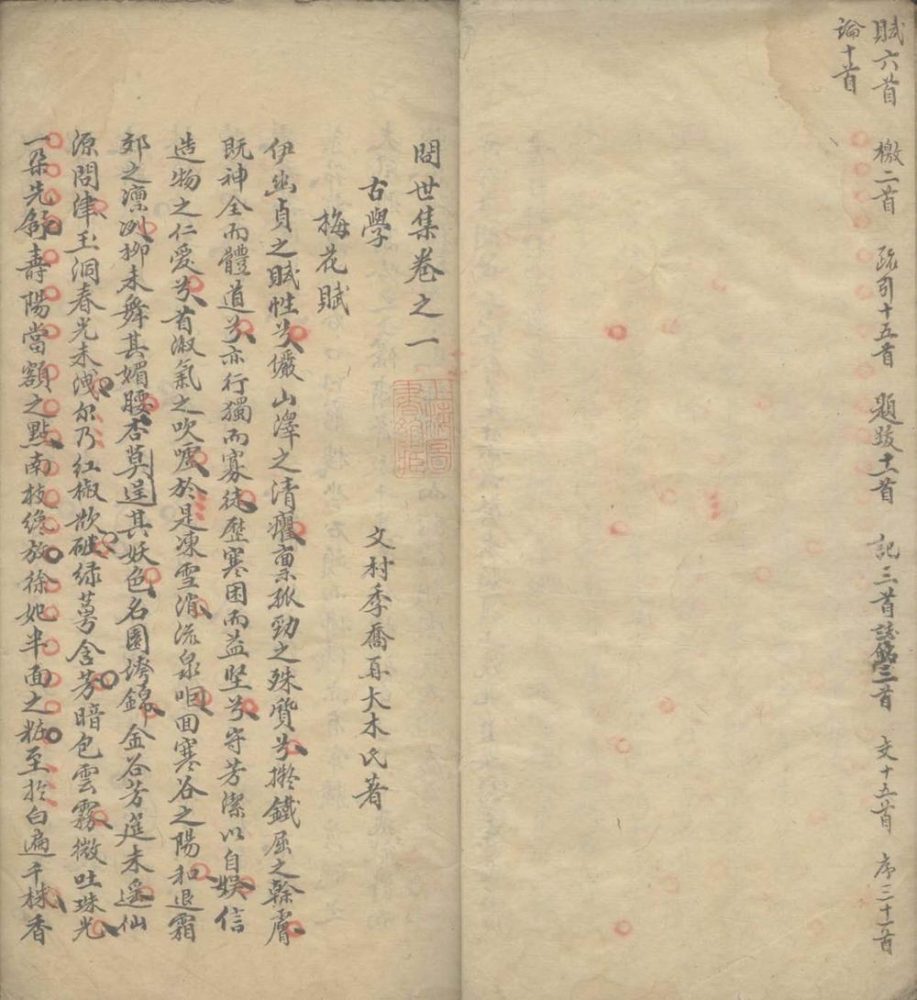 賦六首　檄二首　疏引十五首　題跋十一首　記三首　銘三首　文十五首　序三十一首
論十首
問世集卷之一
古學　文村季喬耳大木氏著
梅花賦
伊幽貞之賦性兮儼山澤之清癯稟孤勁之殊質兮擬鐵屈之幹膚
既神全而體道兮亦行獨而寡徒歷寒困而益堅兮守芳潔以自娛信
造物之仁愛兮首淑氣之吹噓於是凍雪消流泉咽回寒谷之陽和退霜
郊之凛冽柳未舞其媚腰杏莫逞其妖色名園綺錦金谷芳筵未遙仙
源問津玉洞春光未洩尔乃紅椒欲破綠萼含芳暗包雲霧微吐珠光
一朶先舒壽陽當額之點南枝纔放徐妃半面之粧至於白遍千株香